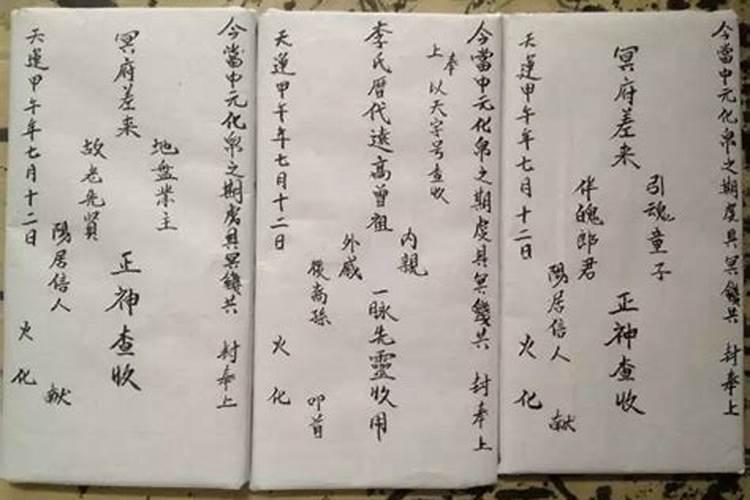 今當中元化帛之期虔具冥錢共 封奉上
冥府差来
引魂童子
伴魄郎君
正神查收
陽居信人 献
天運甲午年七月十二日 火化
今當中元化帛之期虔具冥錢共 封奉上
奉上 以天字号查收
李氏歷代遠高曾祖
内親
外戚
一脉先靈收用
後裔孫 叩首
天運甲午年七月十二日 火化
今當中元化帛之期虔具冥錢共 封奉上
冥府差来
地盤業主
故老先賢
正神查收
陽居信人 献
天運甲午年七月十二日 火化